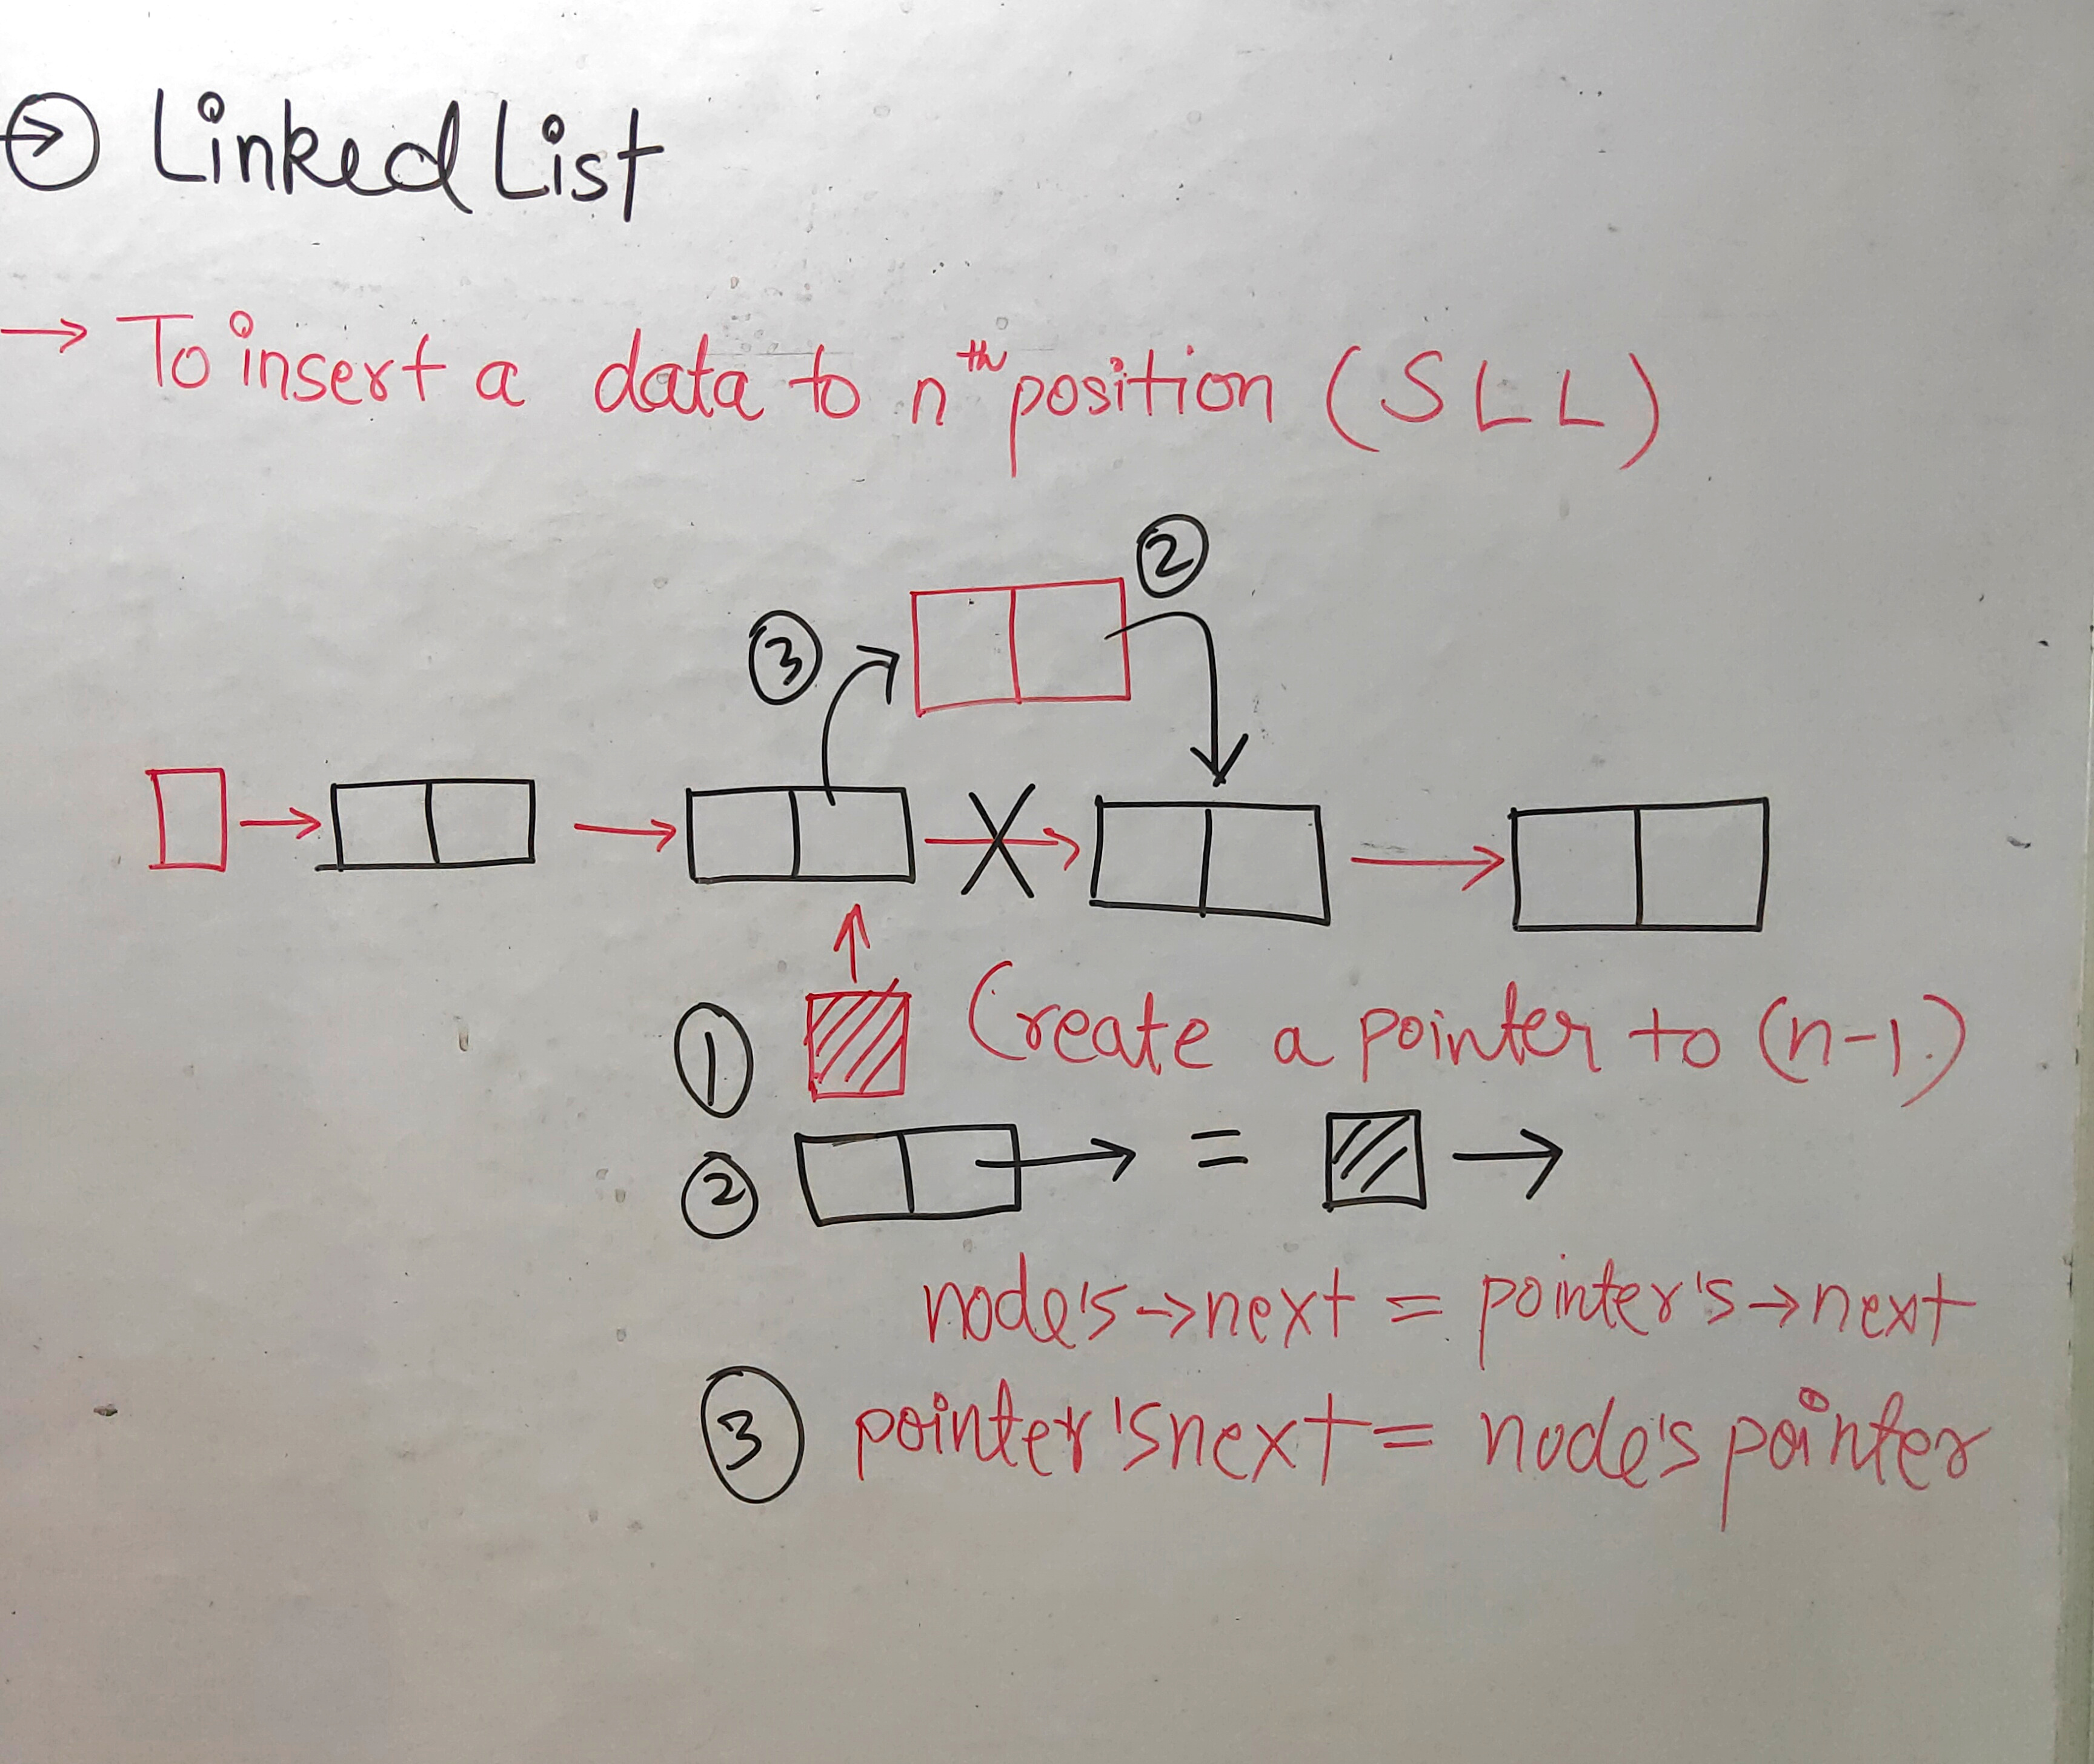 → Linked List
→ To insert a data to nth position (SLL)
②
③
① Create a pointer to (n-1)
② → = →
node's→next = pointer's→next
③ pointer's next = node's pointer